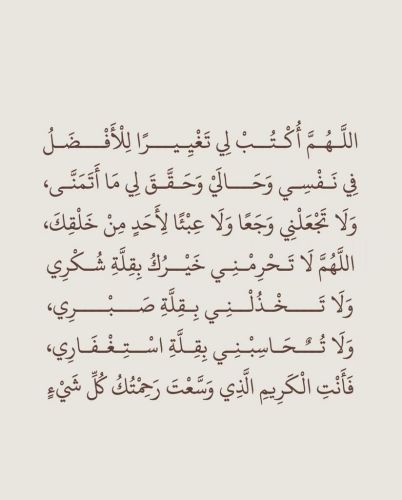 اللَّهُمَّ أُكْتُبْ لِي تَغْيِيرًا لِلْأَفْضَلُ
فِي نَفْسِي وَحَالَيْ وَحَقَّقَ لِي مَا أَتَمَنَّى،
وَلَا تَجْعَلْنِي وَجَعًا وَلَا عِبْئًا لِأَحَدٍ مِنْ خَلْقِكَ،
اللَّهُمَّ لَا تَحْرِمْنِي خَيْرُكُ بِقِلَّةِ شُكْرِي
وَلَا تَخْذُلْنِي بِقِلَّةِ صَبْرِي،
وَلَا تُحَاسِبْنِي بِقِلَّةِ اسْتِغْفَارِي،
فَأَنْتِ الْكَرِيمِ الَّذِي وَسَّعْتَ رَحِمْتُكُ كُلِّ شَيْءٍ